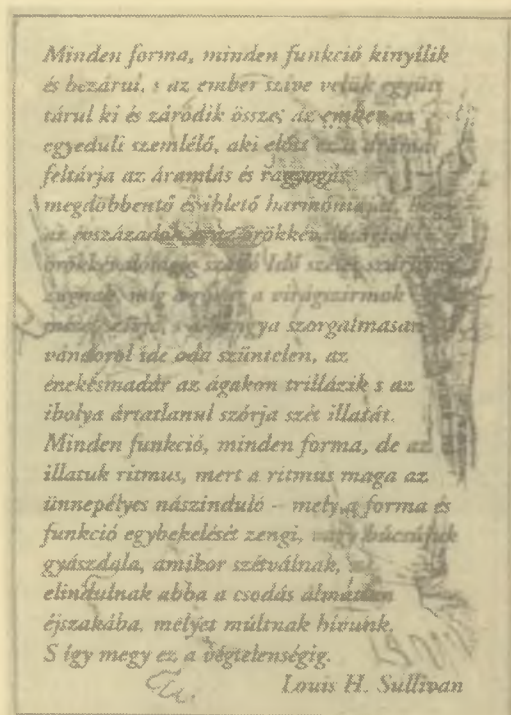 Minden forma, minden funkció kinyílik
és bezárul, s az ember szíve velük együtt
tárul ki és záródik össze; az ember az
egyedüli szemlélő, aki előtt ez a dráma
feltárja az áramlás és ragyogás
megdöbbentő és ihlető
az
Idő
zúgnak, míg a virágszirmok
szorgalmasan
vándorol ide oda szüntelen, az
énekesmadár az ágakon trillázik s az
ibolya ártatlanul szórja szét illatát.
Minden funkció, minden forma, de az
illatuk ritmus, mert a ritmus maga az
ünnepélyes nászinduló - mely a forma és
funkció egybekelését zengi, vagy búcsújuk
gyászdala, amikor szétválnak,
elindulnak abba a csodás álmatlan
éjszakába, melyet múltnak hívunk.
S így megy ez a végtelenségig.
Louis H. Sullivan